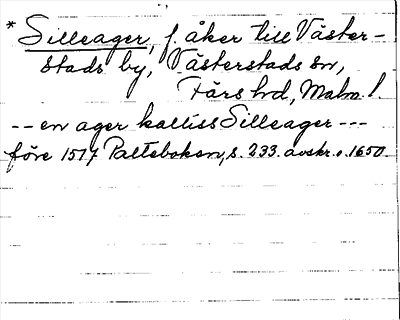 * Silleager, f. åker till Väster-
stads by, Västerstads sn,
Färs hd, Malm. l.
-- en ager kalliss Silleager ---
före 1517 Palteboken, s. 233. avskr. o. 1650.